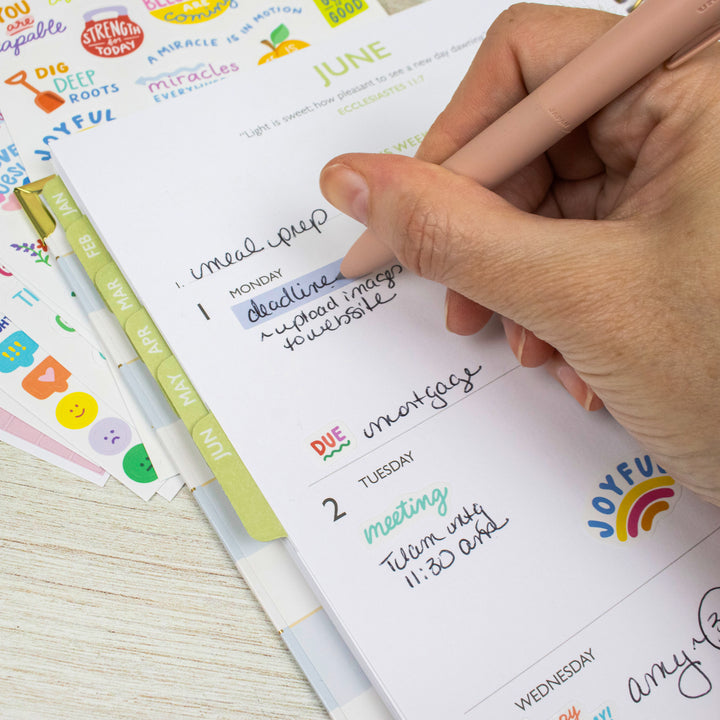 YOU are capable
STRENGTH FOR TODAY
COMING
GOOD
A MIRACLE IS IN MOTION
DIG DEEP
ROOTS
miracles
EVERYWHERE
JOYFUL
JUNE
"Light is sweet; how pleasant to see a new day dawning"
ECCLESIASTES 11:7
JAN
FEB
MAR
APR
MAY
JUN
1. meal prep
1 MONDAY
deadline
~upload images
to website
DUE mortgage
2 TUESDAY
meeting
Team mtg
11:30 am
JOYFUL
WEDNESDAY
amy~